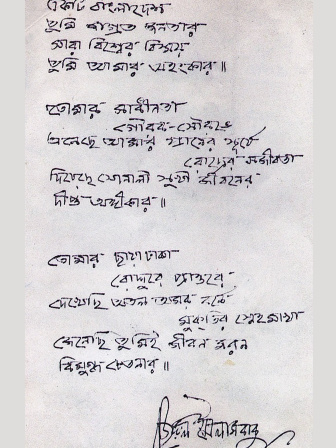 একটি বাংলাদেশ
তুমি জাগ্রত জনতার
সারা বিশ্বের বিস্ময়
তুমি আমার অহংকার॥
তোমার স্বাধীনতা
গৌরব-সৌরভে
এনেছে আমার প্রাণের সূর্যে
রোদ্রের সজীবতা
দিয়েছে সোনালী সুখী জীবনের
দীপ্ত অঙ্গীকার॥
তোমার ছায়া ঢাকা
রোদ্দুরে প্রান্তরে
দেখেছি অতল অমর বর্ণে
মুকতির স্নেহমাখা
জেনেছি তুমিই জীবন মরণ
বিমুগ্ধ চেতনার॥